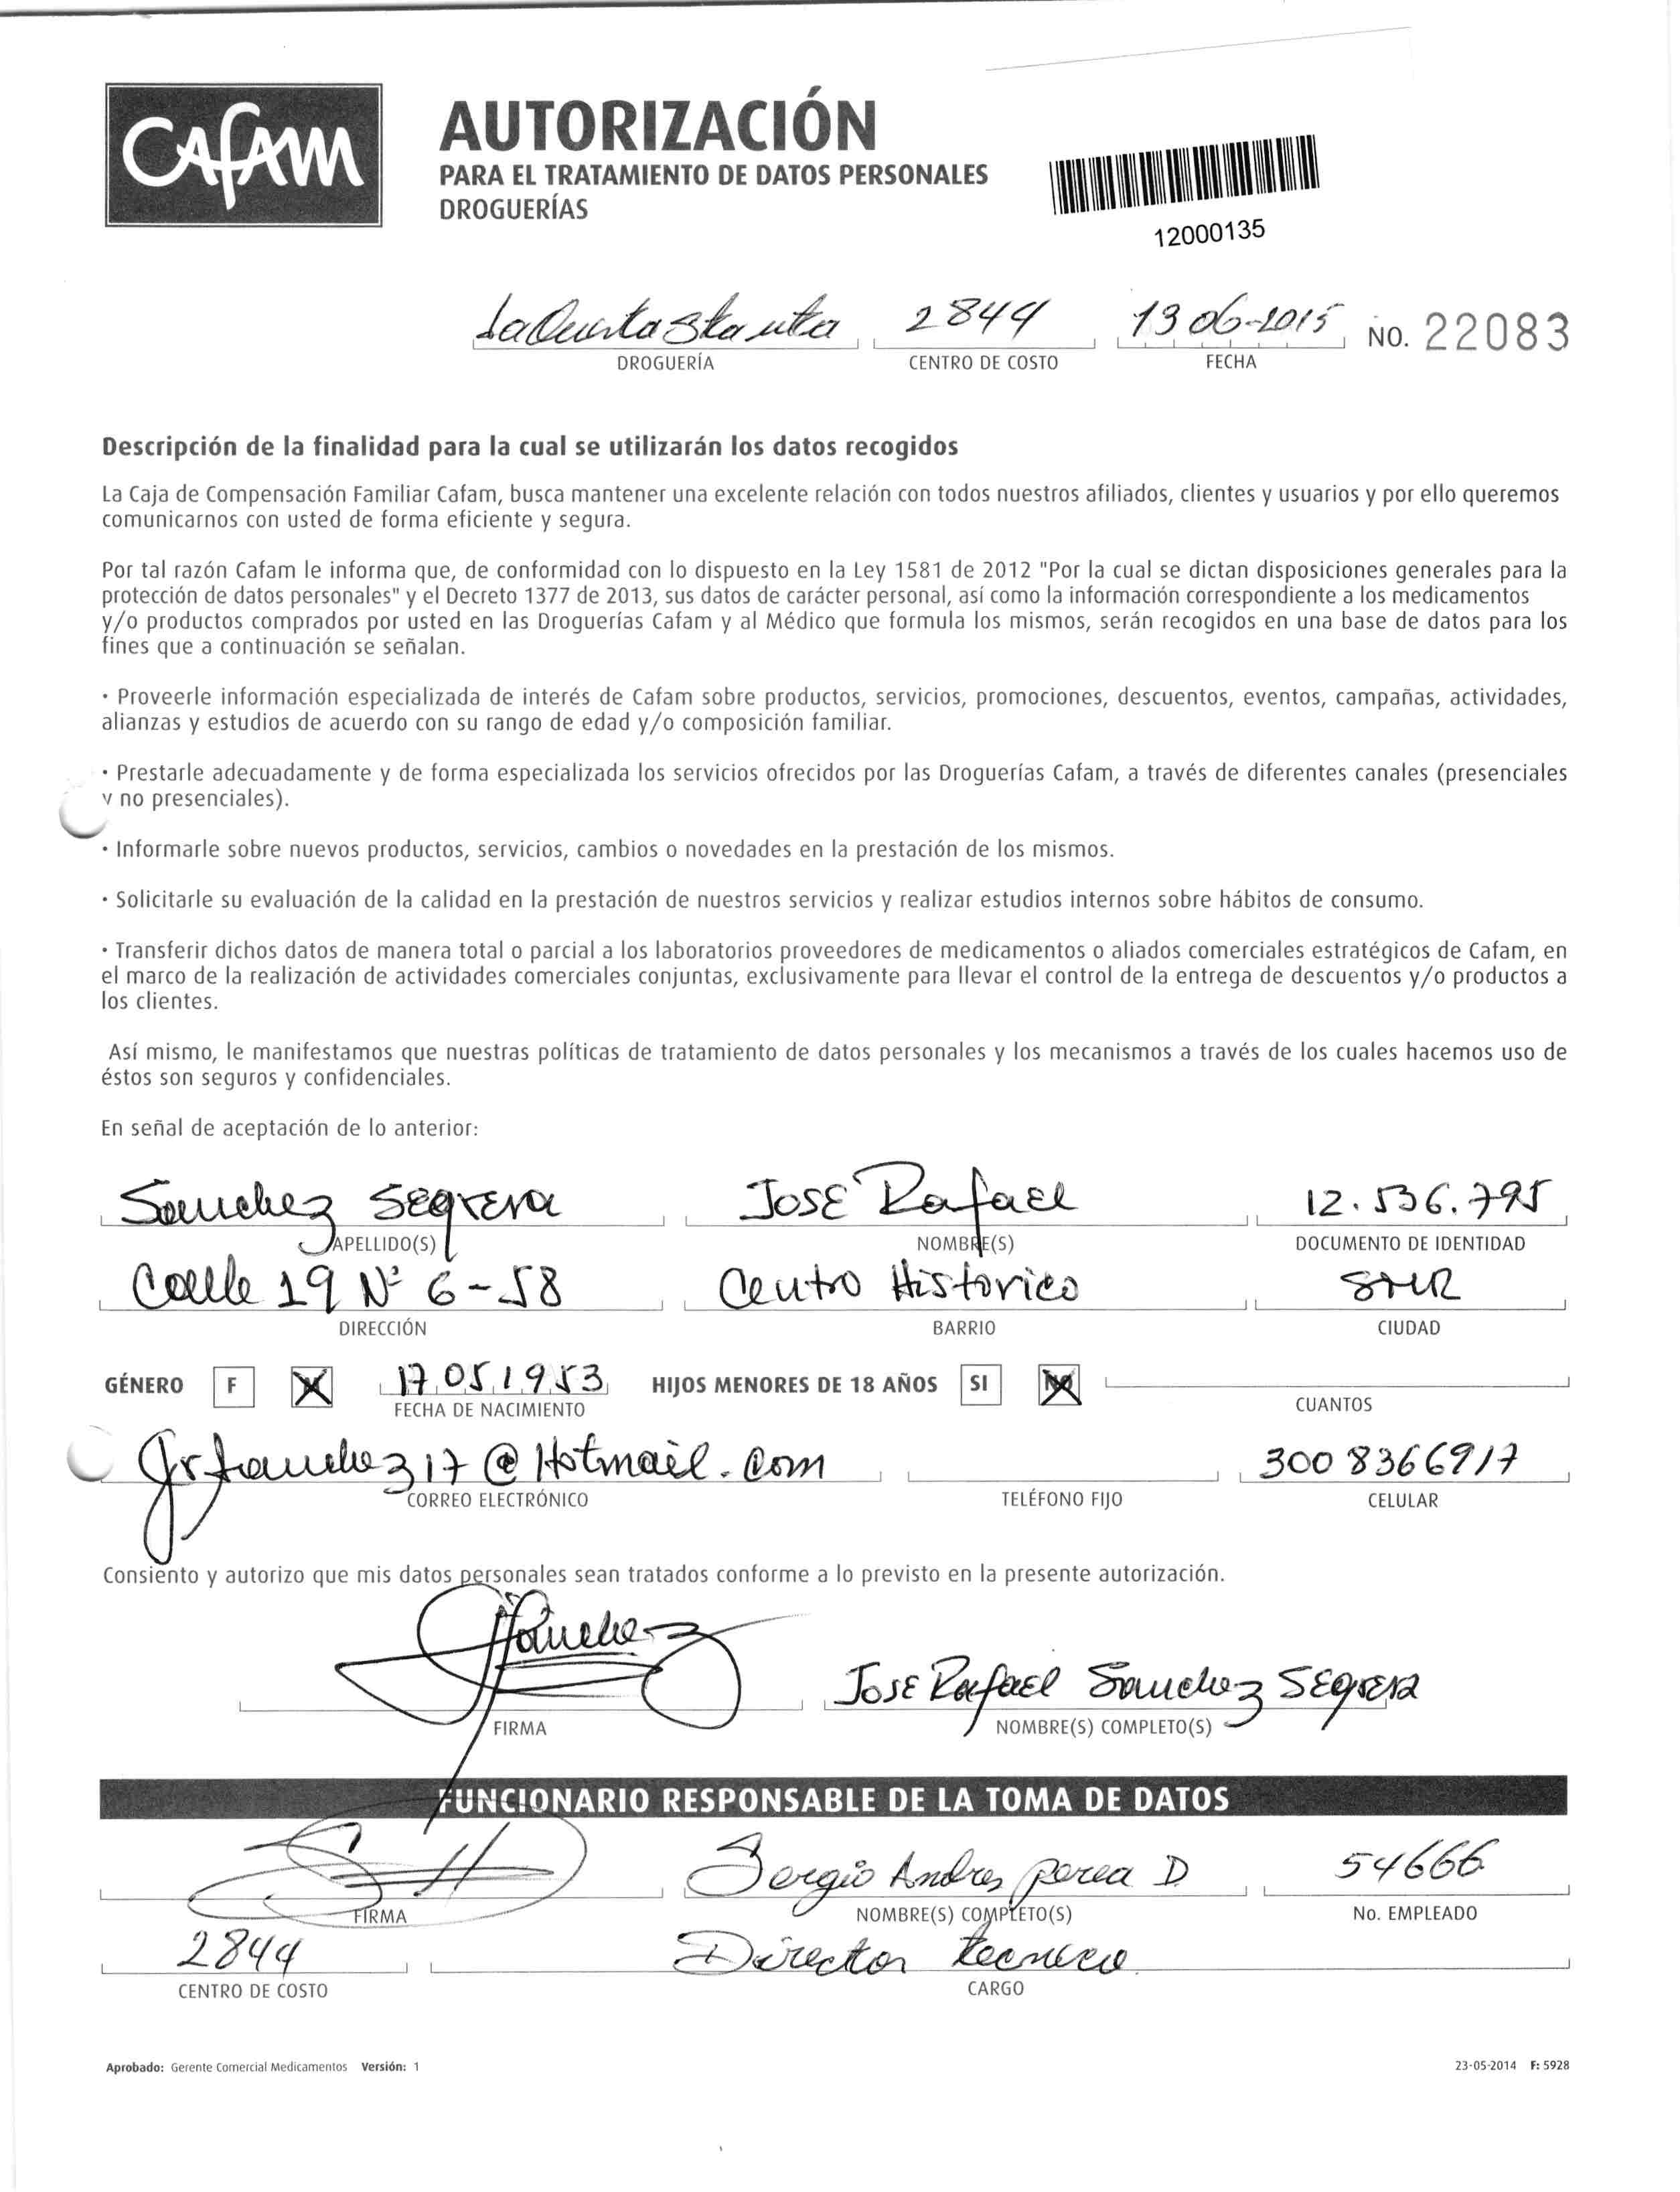 CAFAM
AUTORIZACIÓN
PARA EL TRATAMIENTO DE DATOS PERSONALES
DROGUERÍAS
12000135
2844 13 06-2015 NO. 22083
DROGUERÍA CENTRO DE COSTO FECHA
Descripción de la finalidad para la cual se utilizarán los datos recogidos
La Caja de Compensación Familiar Cafam, busca mantener una excelente relación con todos nuestros afiliados, clientes y usuarios y por ello queremos
comunicarnos con usted de forma eficiente y segura.
Por tal razón Cafam le informa que, de conformidad con lo dispuesto en la Ley 1581 de 2012 "Por la cual se dictan disposiciones generales para la
protección de datos personales" y el Decreto 1377 de 2013, sus datos de carácter personal, así como la información correspondiente a los medicamentos
y/o productos comprados por usted en las Droguerías Cafam y al Médico que formula los mismos, serán recogidos en una base de datos para los
fines que a continuación se señalan.
· Proveerle información especializada de interés de Cafam sobre productos, servicios, promociones, descuentos, eventos, campañas, actividades,
alianzas y estudios de acuerdo con su rango de edad y/o composición familiar.
· Prestarle adecuadamente y de forma especializada los servicios ofrecidos por las Droguerías Cafam, a través de diferentes canales (presenciales
y no presenciales).
· Informarle sobre nuevos productos, servicios, cambios o novedades en la prestación de los mismos.
· Solicitarle su evaluación de la calidad en la prestación de nuestros servicios y realizar estudios internos sobre hábitos de consumo.
· Transferir dichos datos de manera total o parcial a los laboratorios proveedores de medicamentos o aliados comerciales estratégicos de Cafam, en
el marco de la realización de actividades comerciales conjuntas, exclusivamente para llevar el control de la entrega de descuentos y/o productos a
los clientes.
Así mismo, le manifestamos que nuestras políticas de tratamiento de datos personales y los mecanismos a través de los cuales hacemos uso de
éstos son seguros y confidenciales.
En señal de aceptación de lo anterior:
Sanchez Segrera Jose Rafael 12.536.795
APELLIDO(S) NOMBRE(S) DOCUMENTO DE IDENTIDAD
Calle 19 Nº 6-58 Centro Historico
DIRECCIÓN BARRIO CIUDAD
GÉNERO F 17 05 1953 HIJOS MENORES DE 18 AÑOS SI NO
FECHA DE NACIMIENTO CUANTOS
jrsanchez17@Hotmail.com 3008366917
CORREO ELECTRÓNICO TELÉFONO FIJO CELULAR
Consiento y autorizo que mis datos personales sean tratados conforme a lo previsto en la presente autorización.
JSanchez Jose Rafael Sanchez Segrera
FIRMA NOMBRE(S) COMPLETO(S)
FUNCIONARIO RESPONSABLE DE LA TOMA DE DATOS
Sergio Andres perea D 54666
FIRMA NOMBRE(S) COMPLETO(S) No. EMPLEADO
2844 Director tecnico
CENTRO DE COSTO CARGO
Aprobado: Gerente Comercial Medicamentos Versión: 1 23-05-2014 F: 5928